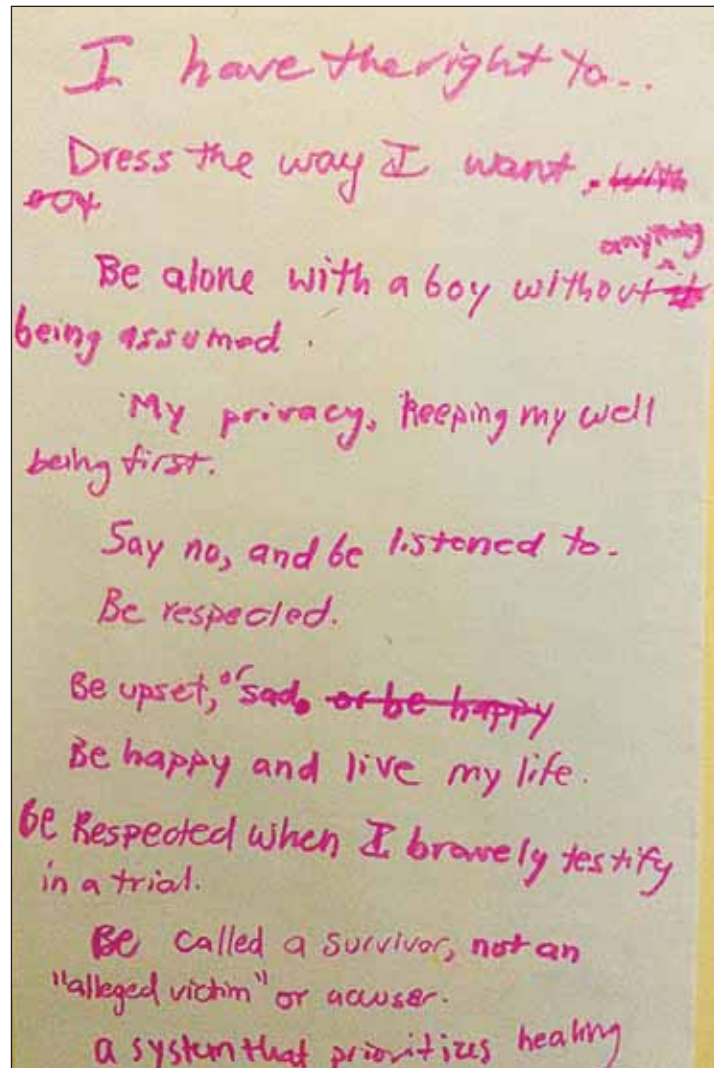 I have the right to...
Dress the way I want.
anything
Be alone with a boy without
being assumed.
My privacy, keeping my well
being first.
Say no, and be listened to.
Be respected.
Be upset, or sad. or be happy
Be happy and live my life.
Be Respected when I bravely testify
in a trial.
Be called a survivor, not an
"alleged victim" or accuser.
a system that prioritizes healing